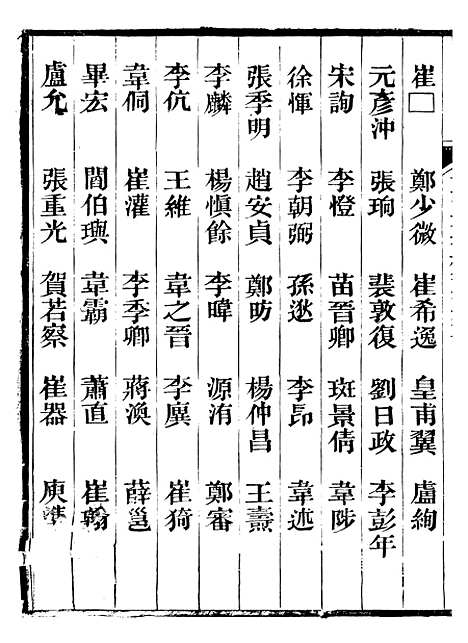 崔□ 鄭少微 崔希逸 皇甫翼 盧絢
元彥沖 張珣 裴敦復 劉日政 李彭年
宋詢 李憕 苗晉卿 班景倩 韋陟
徐惲 李朝弼 孫逖 李昂 韋述
張季明 趙安貞 鄭昉 楊仲昌 王燾
李麟 楊愼餘 李暐 源洧 鄭審
李伉 王維 韋之晉 李廙 崔猗
韋侗 崔灌 李季卿 蔣渙 薛邕
畢宏 閻伯璵 韋霸 蕭直 崔翰
盧允 張重光 賀若察 崔器 庾準